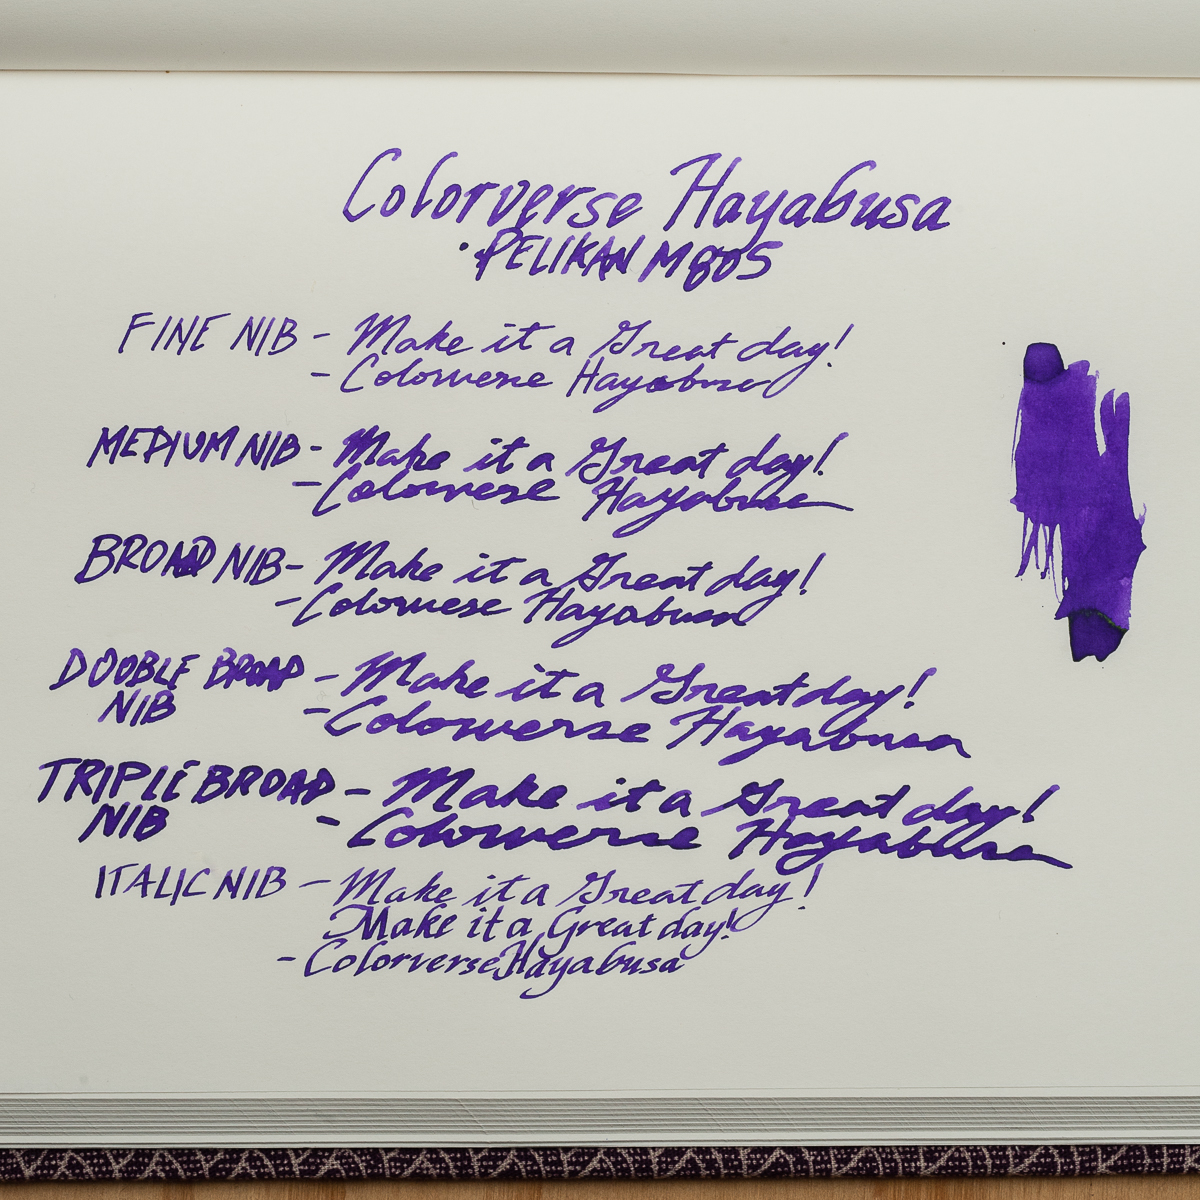 Colorverse Hayabusa
· PELIKAN M805
FINE NIB - Make it a Great day!
- Colorverse Hayabusa
MEDIUM NIB - Make it a Great day!
- Colorverse Hayabusa
BROAD NIB - Make it a Great day!
- Colorverse Hayabusa
DOUBLE BROAD - Make it a Great day!
NIB - Colorverse Hayabusa
TRIPLE BROAD - Make it a Great day!
NIB - Colorverse Hayabusa
ITALIC NIB - Make it a Great day!
Make it a Great day!
- Colorverse Hayabusa